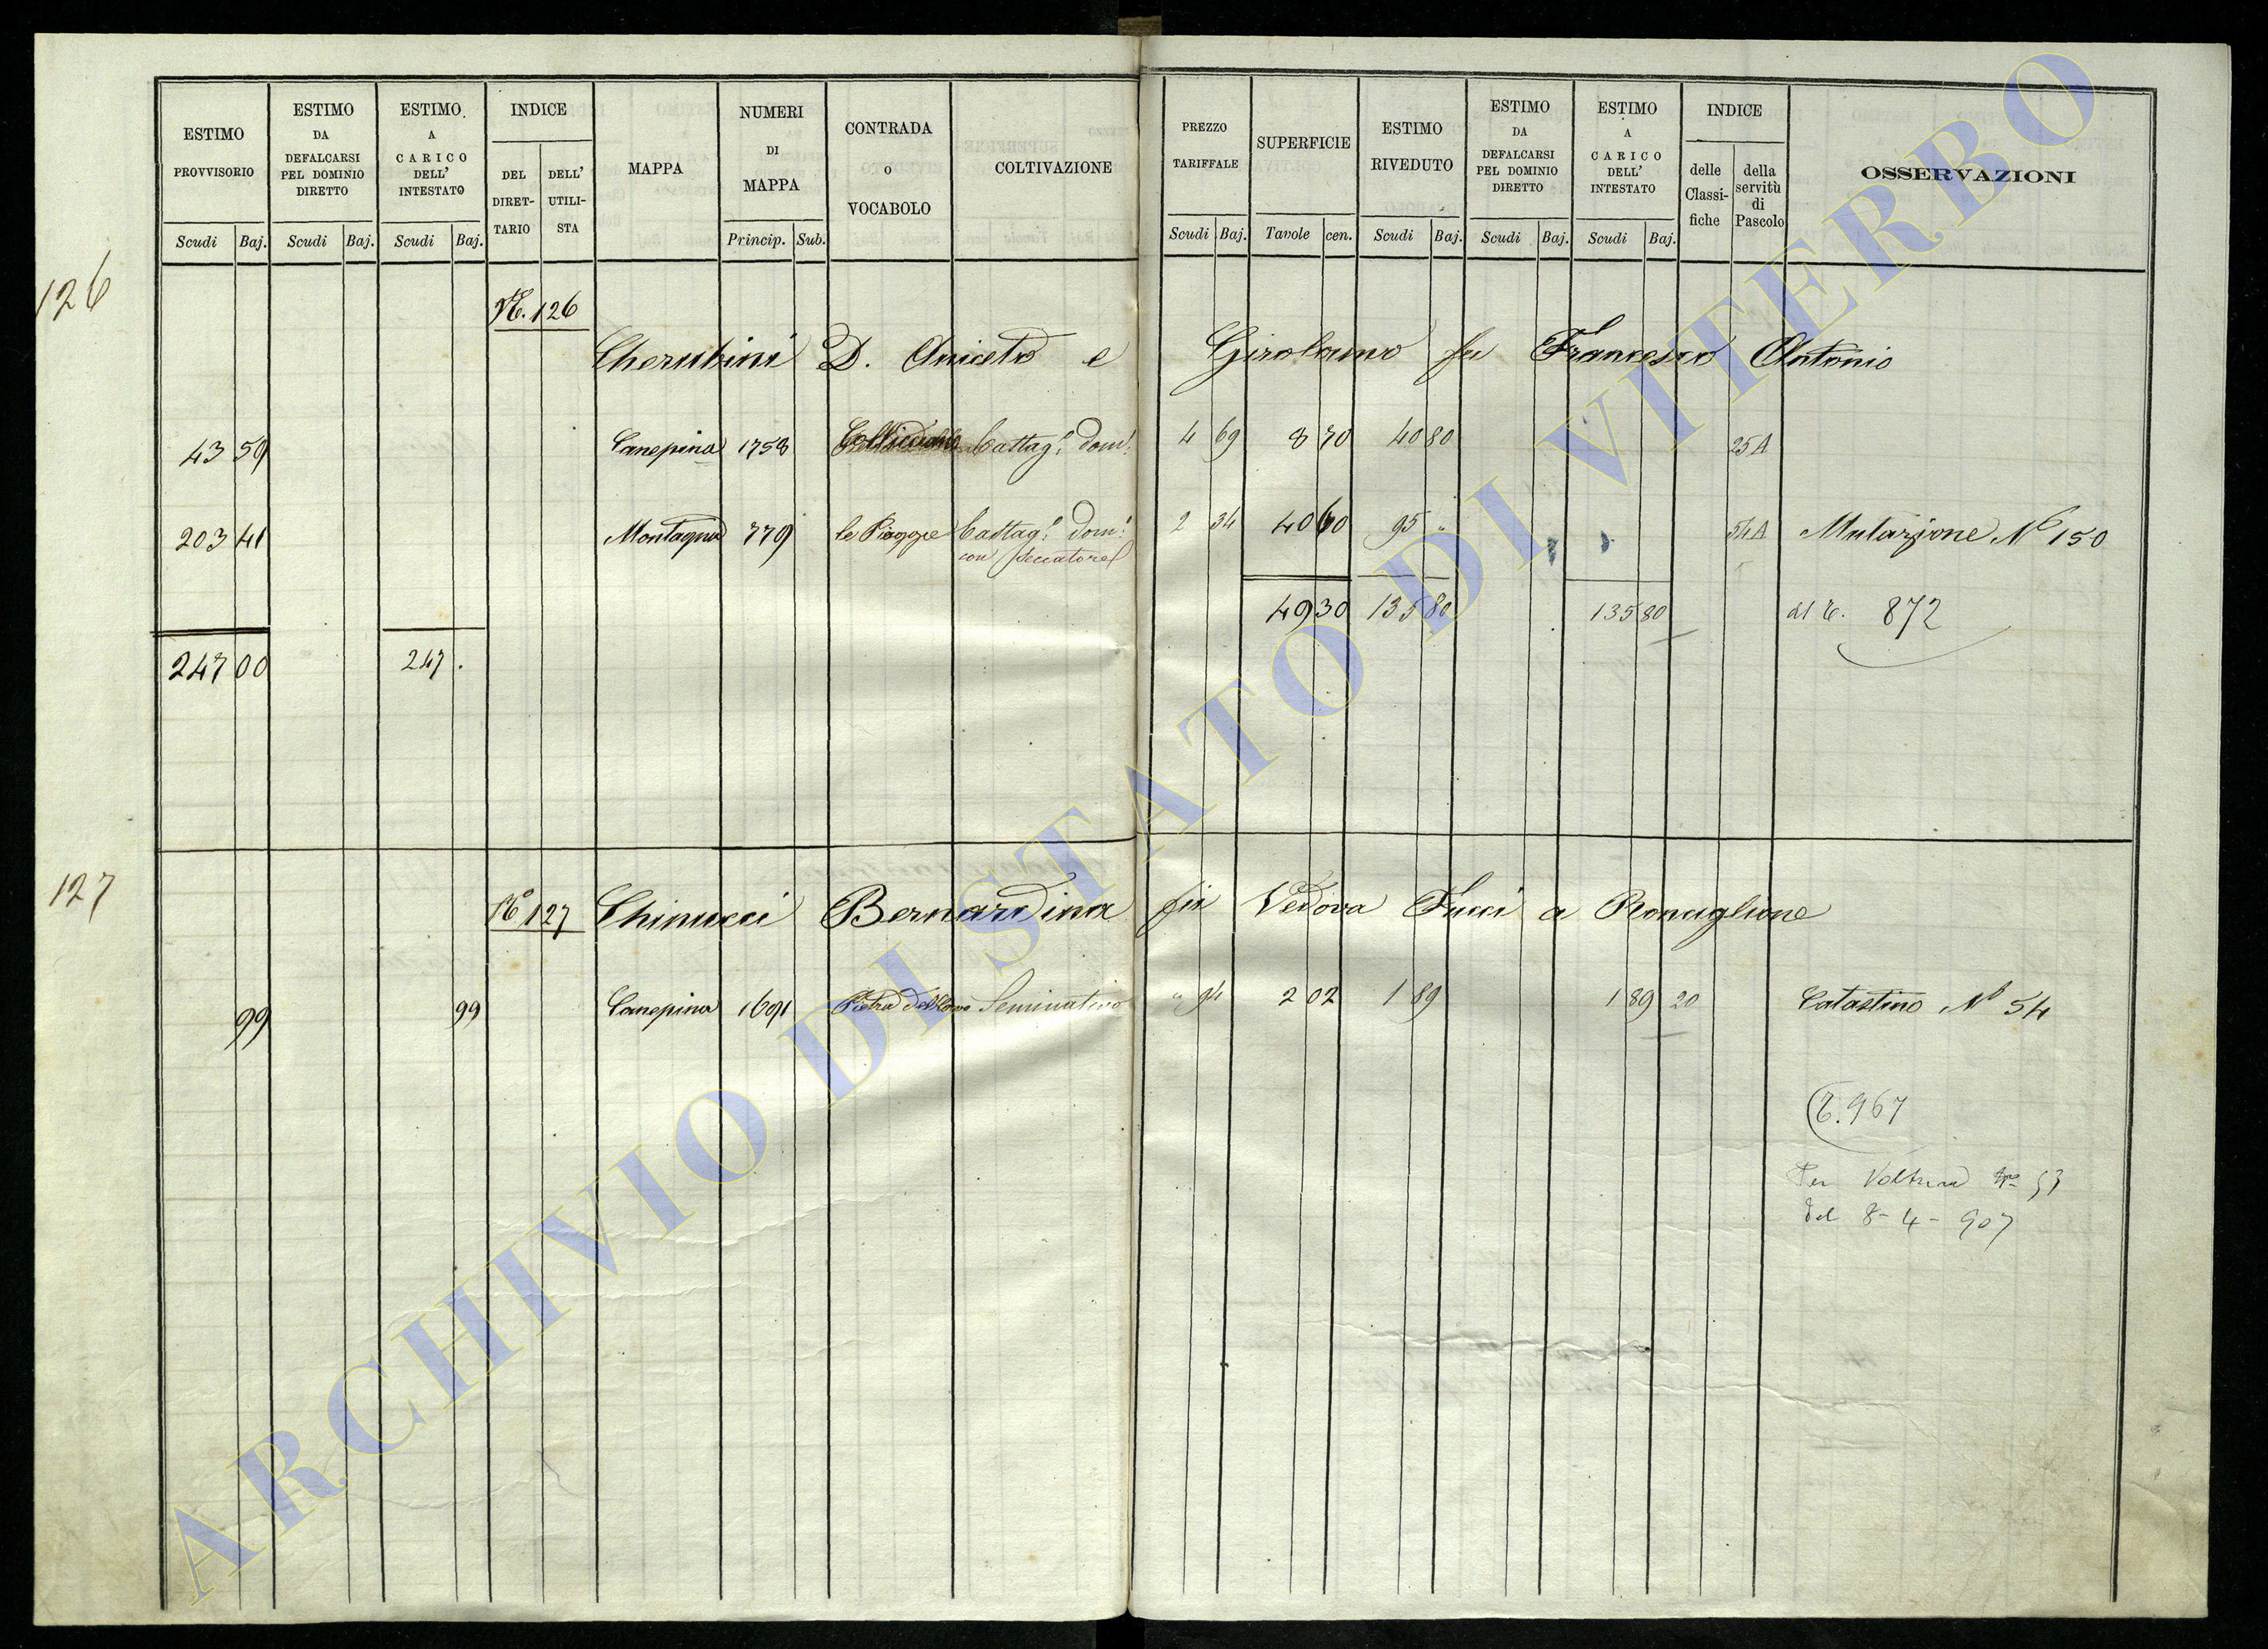 ESTIMO PROVVISORIO
Scudi Baj.
ESTIMO DA DEFALCARSI PEL DOMINIO DIRETTO
Scudi Baj.
ESTIMO A CARICO DELL' INTESTATO
Scudi Baj.
INDICE
DEL DIRET-TARIO
DELL' UTILI-STA
MAPPA
NUMERI DI MAPPA
Princip. Sub.
CONTRADA o VOCABOLO
COLTIVAZIONE
PREZZO TARIFFALE
Scudi Baj.
SUPERFICIE
Tavole cen.
ESTIMO RIVEDUTO
Scudi Baj.
ESTIMO DA DEFALCARSI PEL DOMINIO DIRETTO
Scudi Baj.
ESTIMO A CARICO DELL' INTESTATO
Scudi Baj.
INDICE
delle Classi-fiche
della servitù di Pascolo
OSSERVAZIONI
126
N. 126
Cherubini D. Aniceto e Girolamo fu Francesco Antonio
43 59 Canepina 1758 Castag. dom. 4 69 8 70 40 80 25A
203 41 Montagna 779 le Piagge Castag. dom. 2 34 40 60 95 " 54A Mutazione N° 150
con seccatore
49 30 135 80 135 80 al C. 872
247 00 247 .
127
N° 127 Chinucci Bernardina in Vedova Fucci a Ronciglione
99 99 Canepina 1691 Pietra dell'ovo Seminativo " 94 2 02 1 89 1 89 20 Catastino N° 54
C. 967
Per Voltura N° 53
del 8-4-907
ARCHIVIO DI STATO DI VITERBO